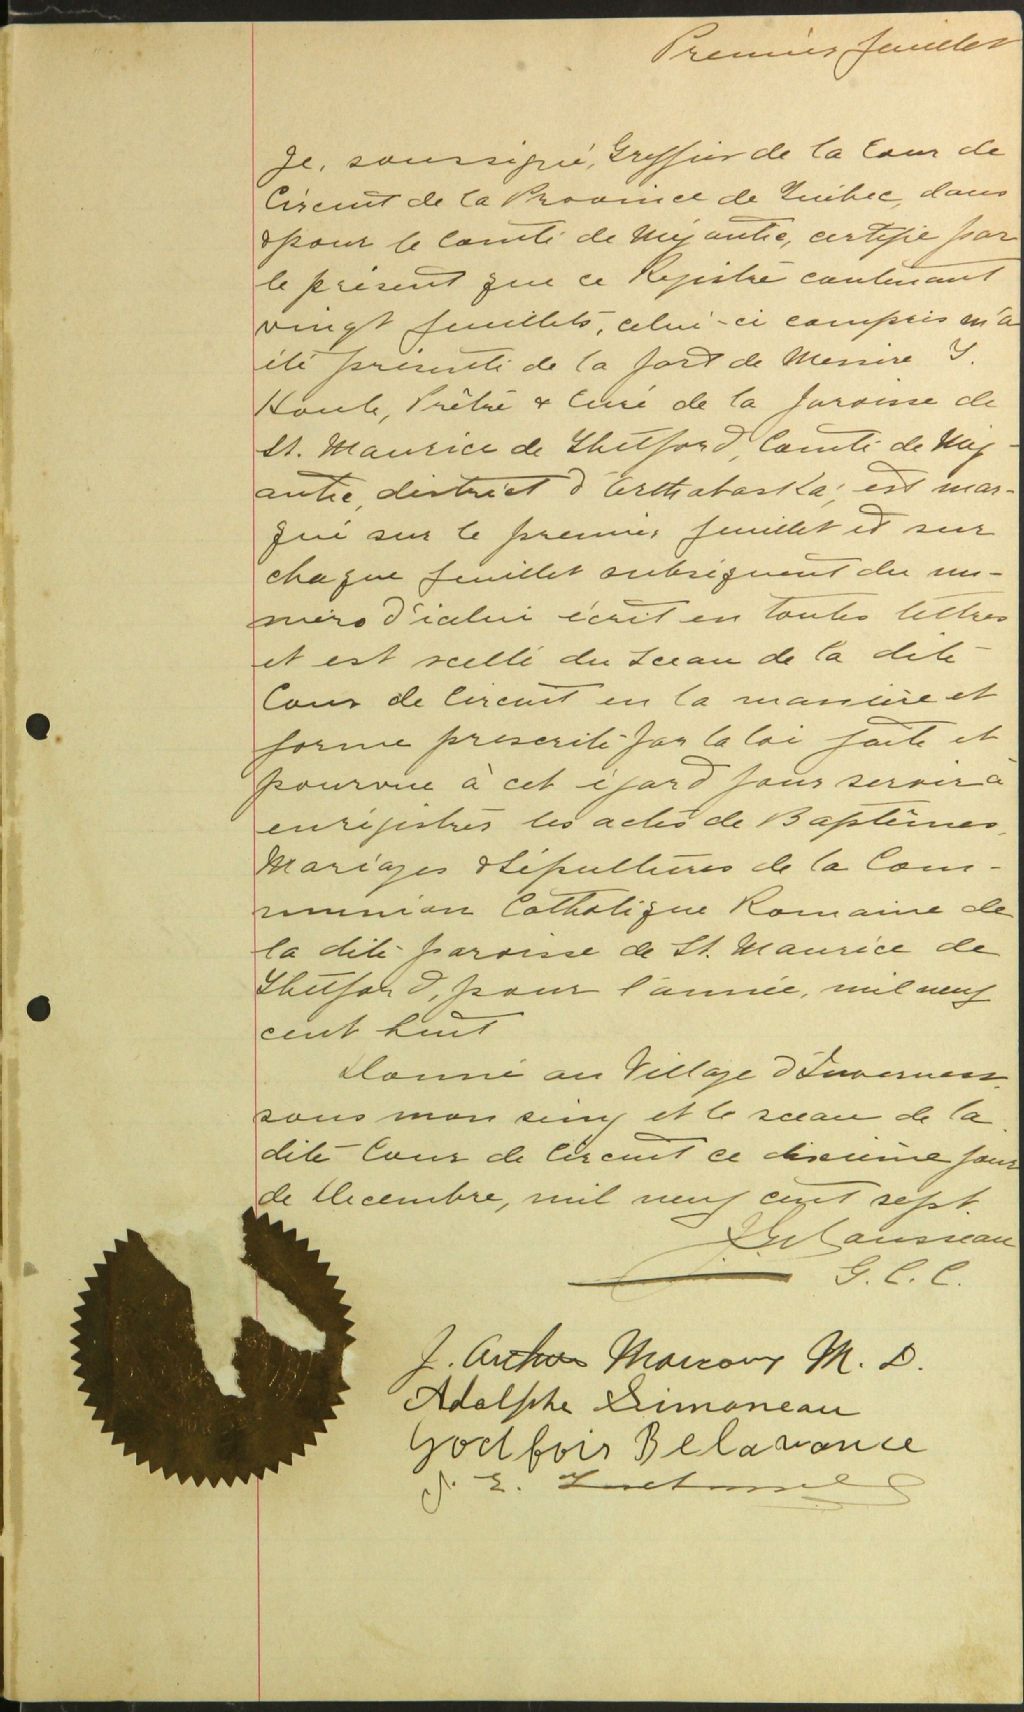 Premier feuillet
Je, soussigné, Greffier de la Cour de
Circuit de la Province de Québec, dans
& pour le Comté de Mégantic, certifie par
le présent que ce Registre contenant
vingt feuillets, celui-ci compris m'a
été présenté de la part de Messire J.
Houle, Prêtre & Curé de la paroisse de
St. Maurice de Thetford, Comté de Még-
antic, district d'Arthabaska; est mar-
qué sur le premier feuillet et sur
chaque feuillet subséquent du nu-
méro d'icelui écrit en toutes lettres
et est scellé du Sceau de la dite
Cour de Circuit en la manière et
forme prescrite par la loi faite et
pourvue à cet égard pour servir à
enregistrer les actes de Baptêmes,
Mariages & Sépultures de la Com-
munion Catholique Romaine de
la dite paroisse de St. Maurice de
Thetford, pour l'année, mil neuf
cent huit
Donné au Village d'Inverness
sous mon seing et le sceau de la
dite Cour de Circuit ce dixième jour
de Décembre, mil neuf cent sept.
Rousseau
G. C. C.
J. Arthur Marcoux M. D.
Adolphe Simoneau
Godfois Belavance
J. E.